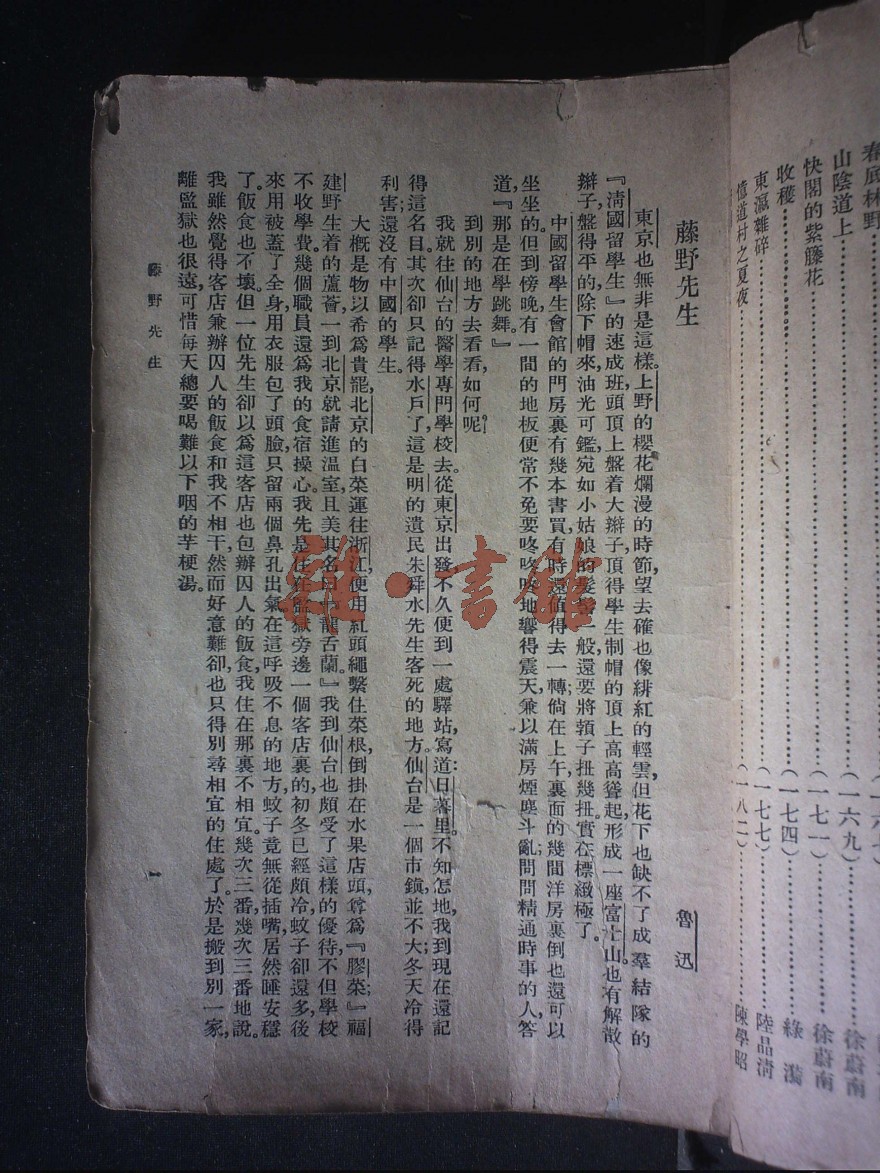 春底林野
山陰道上……(一六九)……徐蔚南
快閣的紫籐花……(一七一)……徐蔚南
收穫……(一七四)……綠漪
東瀛雜碎……(一七七)……陸品清
憶道村之夏夜……(一八二)……陳學昭
藤野先生 魯迅
東京也無非是這樣。上野的櫻花爛漫的時節,望去確也像緋紅的輕雲,但花下也缺不了成羣結隊的
『淸國留學生』的速成班,頭頂上盤着大辮子,頂得學生制帽的頂上高高聳起,形成一座富士山。也有解散
辮子,盤得平的,除下帽來,油光可鑑,宛如小姑娘的髮髻一般,還要將頸子扭幾扭。實在標緻極了。
中國留學生會館的門房裏有幾本書買,有時還值得去一轉;倘在上午,裏面的幾間洋房裏倒也還可以
坐坐的。但到傍晚,有一間的地板便常不免要咚咚咚地響得震天,兼以滿房煙塵斗亂;問問精通時事的人,答
道,『那是在學跳舞。』
到別的地方去看看,如何呢?
我就往仙台的醫學專門學校去。從東京出發,不久便到一處驛站,寫道:日暮里。不知怎地,我到現在還記
得這名目。其次卻只記得水戶了,這是明的遺民朱舜水先生客死的地方。仙台是一個市鎮,並不大;冬天冷得
利害;還沒有中國的學生。
大概是物以希爲貴罷。北京的白菜運往浙江,便用紅頭繩繫住菜根,倒掛在水果店頭,尊爲『膠菜;』福
建野生着的蘆薈,一到北京就請進溫室,且美其名曰『龍舌蘭。』我到仙台也頗受了這樣的優待,不但學校
不收學費,幾個職員還爲我的食宿操心。我先是住在監獄旁邊一個客店裏的,初冬已經頗冷,蚊子卻還多,後
來用被蓋了全身,用衣服包了頭臉,只留兩個鼻孔出氣。在這呼吸不息的地方,蚊子竟無從插嘴,居然睡安穩
了。飯食也不壞。但一位先生卻以爲這客店也包辦囚人的飯食,我住在那裏不相宜。幾次三番,幾次三番地說。
我雖然覺得客店兼辦囚人的飯食和我不相干,然而好意難卻,也只得別尋相宜的住處了。於是搬到別一家,
離監獄也很遠,可惜每天總要喝難以下咽的芋梗湯。
藤野先生 一
雜·書館